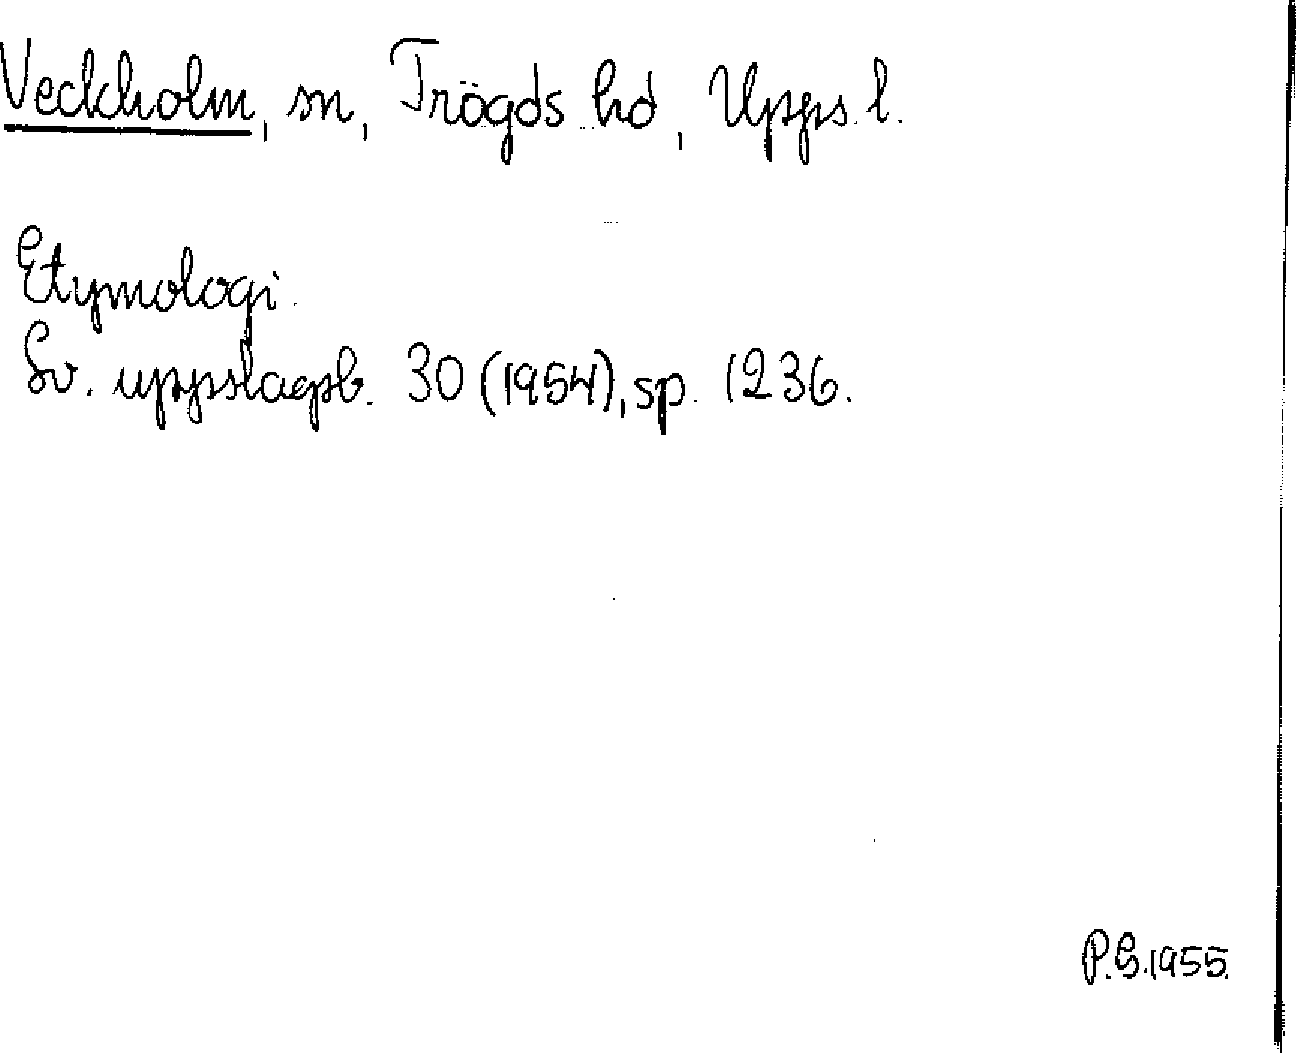 Veckholm, sn, Trögds hd, Upps. l.
Etymologi.
Sv. uppslagsb. 30 (1954), sp. 1236.
P.G. 1955.